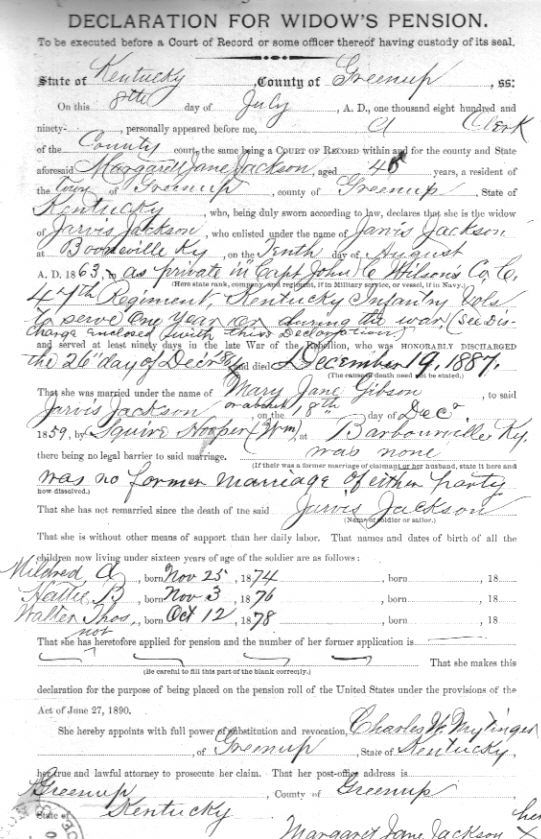 DECLARATION FOR WIDOW'S PENSION.
To be executed before a Court of Record or some officer thereof having custody of its seal.
State of Kentucky, County of Greenup, ss:
On this 8th day of July, A. D., one thousand eight hundred and
ninety-, personally appeared before me, a Clerk
of the County court, the same being a COURT OF RECORD within and for the county and State
aforesaid Margaret Jane Jackson, aged years, a resident of
the Town of Greenup, county of Greenup, State of
Kentucky, who, being duly sworn according to law, declares that she is the widow
of Jarvis Jackson, who enlisted under the name of Jarvis Jackson
at Booneville Ky, on the Tenth day of August
A. D. 1863, as private in Capt John C Wilsons Co. C.
(Here state rank, company, and regiment, if in Military service, or vessel, if in Navy.)
47th Regiment Kentucky Infantry Vols
to serve one year or during the war (See Dis-
charge enclosed with this Declaration)
and served at least ninety days in the late War of the Rebellion, who was HONORABLY DISCHARGED
the 26" day of Decr and died December 19, 1887.
(The cause of death need not be stated.)
That she was married under the name of Mary Jane Gibson, to said
Jarvis Jackson, on or about the 18th day of Decr
1859, by Squire Hooper (Wm), at Barbourville Ky.
there being no legal barrier to said marriage. was none
(If there was a former marriage of claimant or her husband, state it here and
was no former marriage of either party
how dissolved.)
That she has not remarried since the death of the said Jarvis Jackson
(Name of soldier or sailor.)
That she is without other means of support than her daily labor. That names and dates of birth of all the
children now living under sixteen years of age of the soldier are as follows:
Mildred A, born Nov 25, 1874, born, 18
Hattie B, born Nov 3, 1876, born, 18
Walter Thos, born Oct 12, 1878, born, 18
That she has not heretofore applied for pension and the number of her former application is
That she makes this
(Be careful to fill this part of the blank correctly.)
declaration for the purpose of being placed on the pension roll of the United States under the provisions of the
Act of June 27, 1890.
She hereby appoints with full power of substitution and revocation, Charles W. Mytinger
, of Greenup, State of Kentucky,
her true and lawful attorney to prosecute her claim. That her post-office address is
Greenup, County of Greenup
State of Kentucky
Margaret Jane Jackson her
X